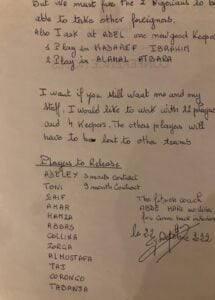 But we must fire the 2 Nigerians to be
able to take other foreigners.
Also I ask at ADEL one new good Keeper
1 Play in KADAREF IBRAHIM
2 Play in ALAHAL ATBARA
I want if you still want me and my
Staff. I would like to work with 22 players
and 4 Keepers. The others players will
have to be lent to other teams
Players to Release
ADELEY 3 months contract
TONI 9 month contract
SAIF
AMAR
HAMZA
ABBAS
COLLINA
ZORGA
ALMUSTAFA
TAJ
CORONGO
TABANJA
The fitness coach
ABDE
for come back
le 22